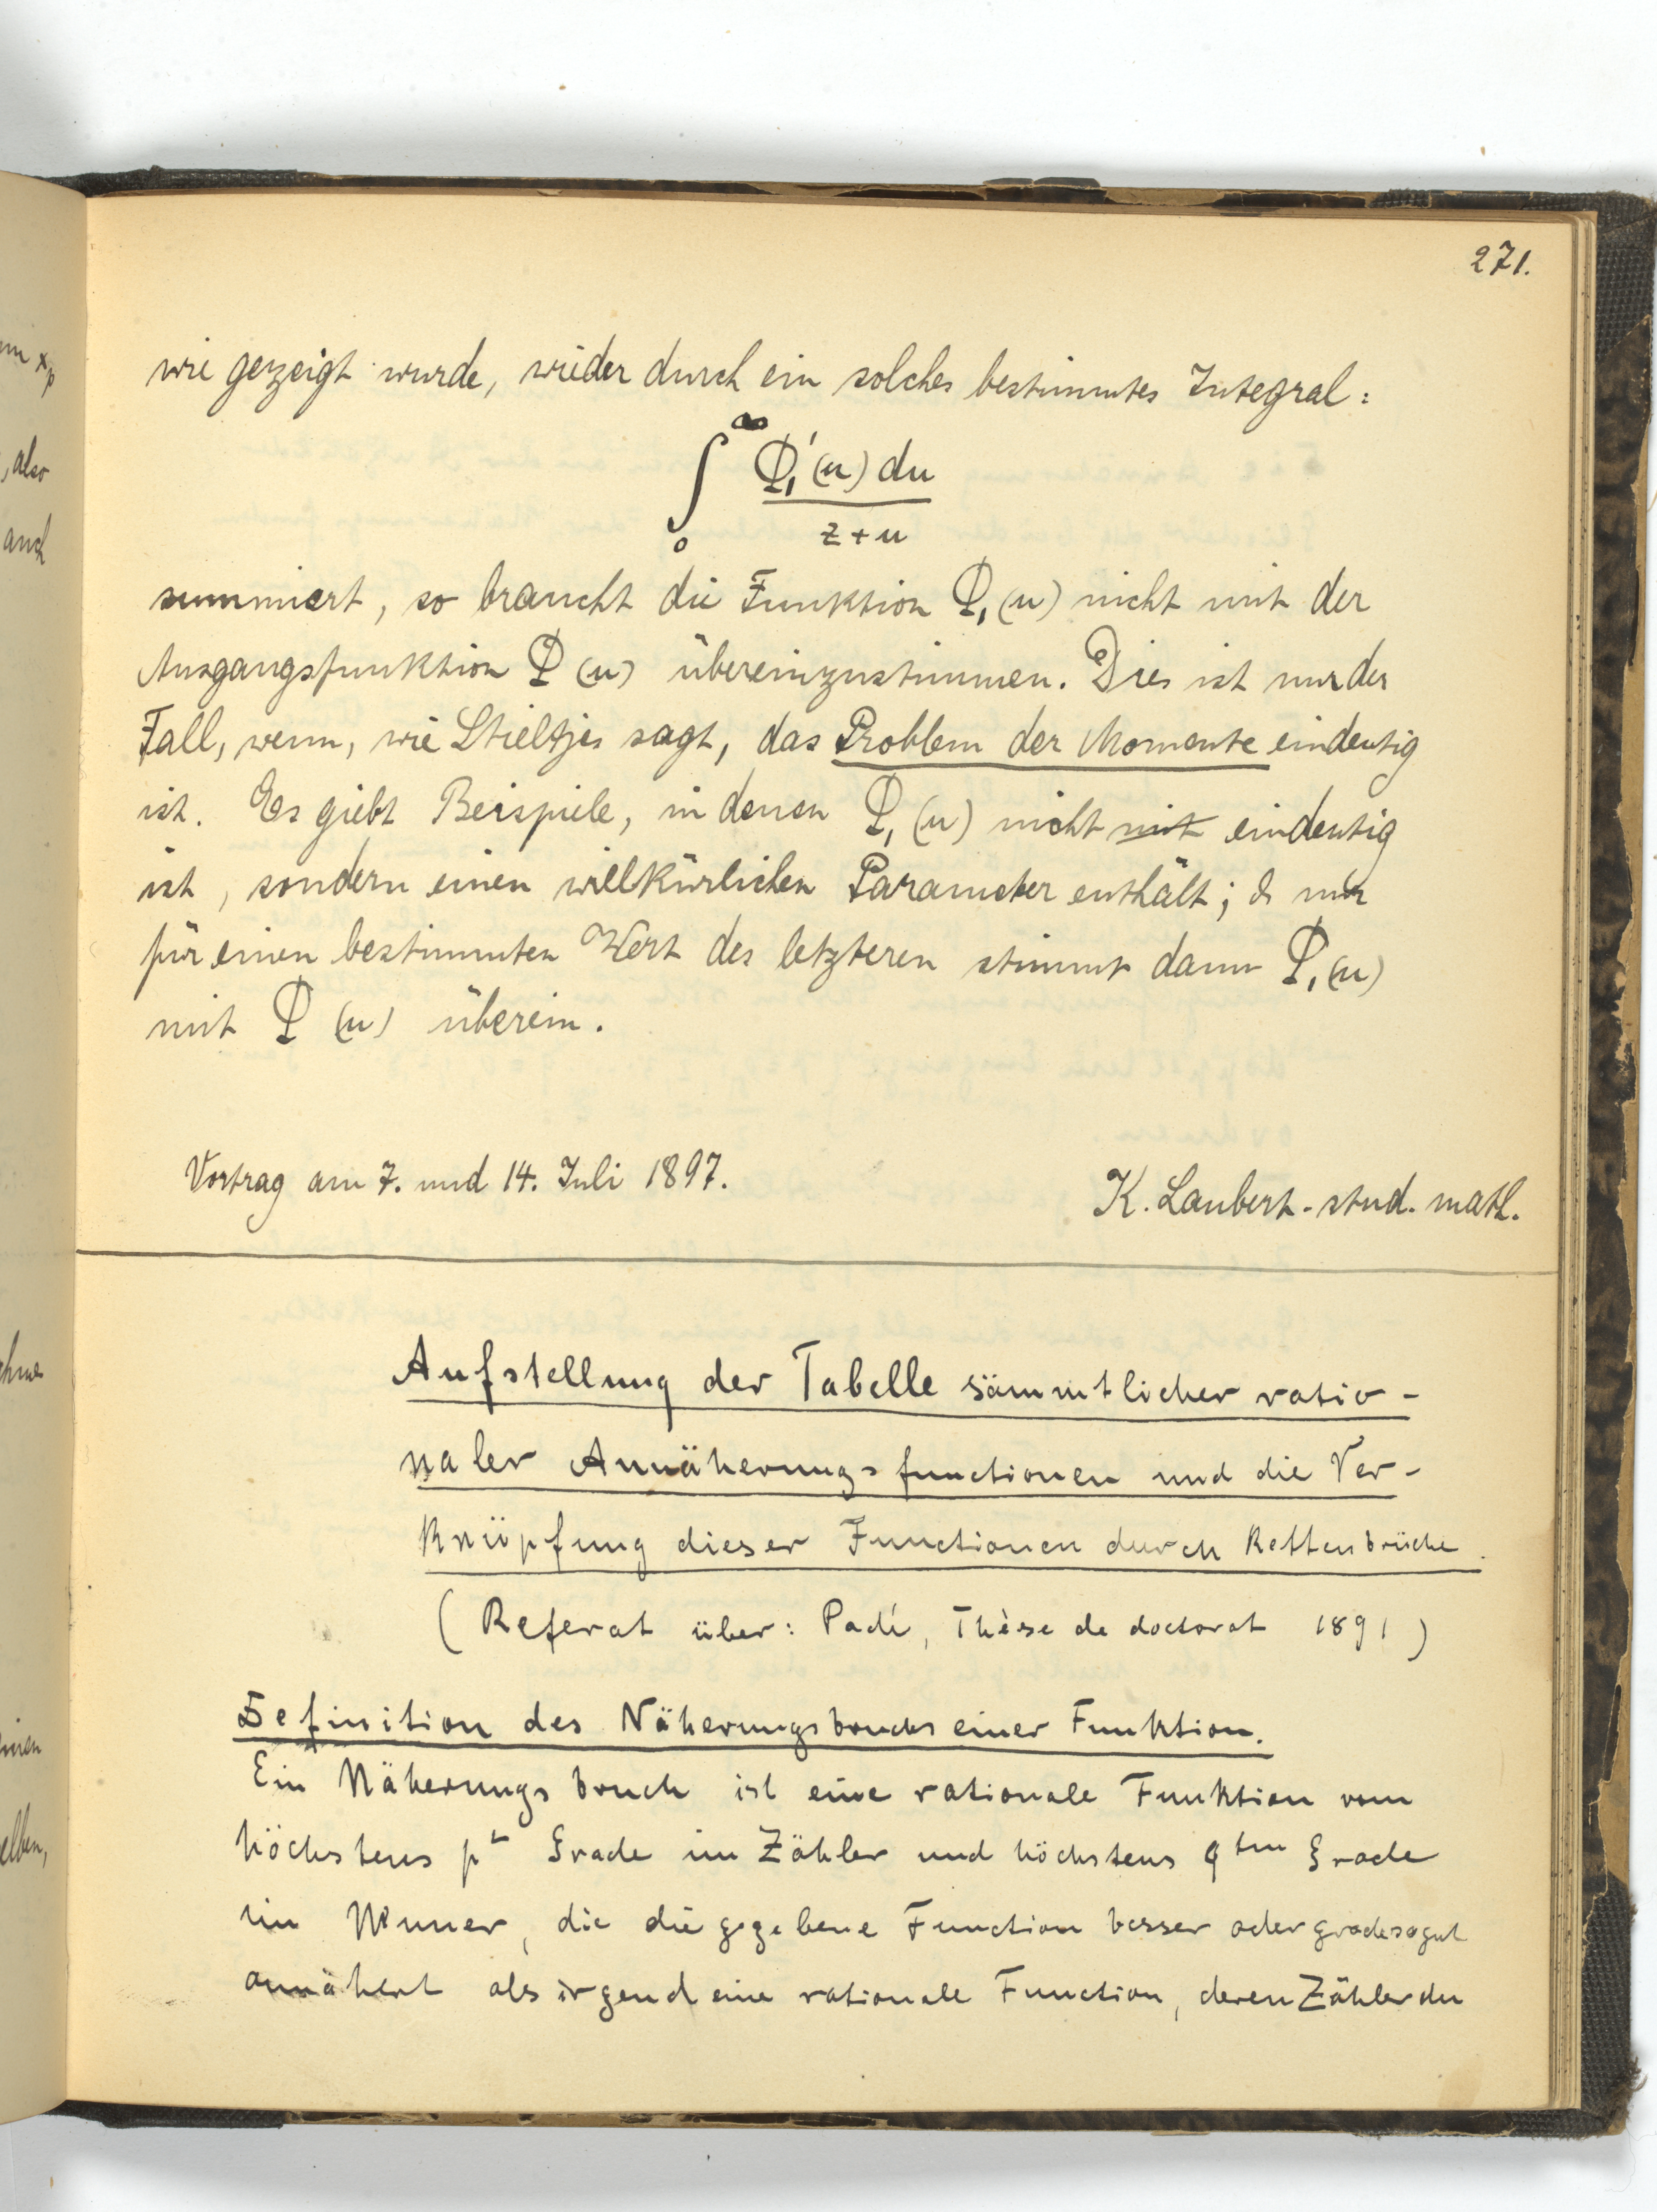 271.
wie gezeigt wurde, wieder durch ein solches bestimmtes Integral:
∫₀^∞ Φ₁'(u) du / z+u
summiert, so braucht die Funktion Φ₁(u) nicht mit der
Ausgangsfunktion Φ(u) übereinzustimmen. Dies ist nur der
Fall, wenn, wie Stieltjes sagt, das Problem der Momente eindeutig
ist. Es giebt Beispiele, in denen Φ₁(u) nicht mit eindeutig
ist, sondern einen willkürlichen Parameter enthält; & nur
für einen bestimmten Wert des letzteren stimmt dann Φ₁(u)
mit Φ(u) überein.
Vortrag am 7. und 14. Juli 1897.
K. Laubert. stud. math.
Aufstellung der Tabelle sämmtlicher ratio-
naler Annäherungsfunctionen und die Ver-
knüpfung dieser Functionen durch Kettenbrüche.
(Referat über: Padé, Thèse de doctorat 1891)
Definition des Näherungsbruchs einer Funktion.
Ein Näherungsbruch ist eine rationale Funktion vom
höchstens p Grade im Zähler und höchstens q ten Grade
im Nenner, die die gegebene Function besser oder gradesogut
annähert als irgend eine rationale Function, deren Zähler den
xp
, also
auch
elben,